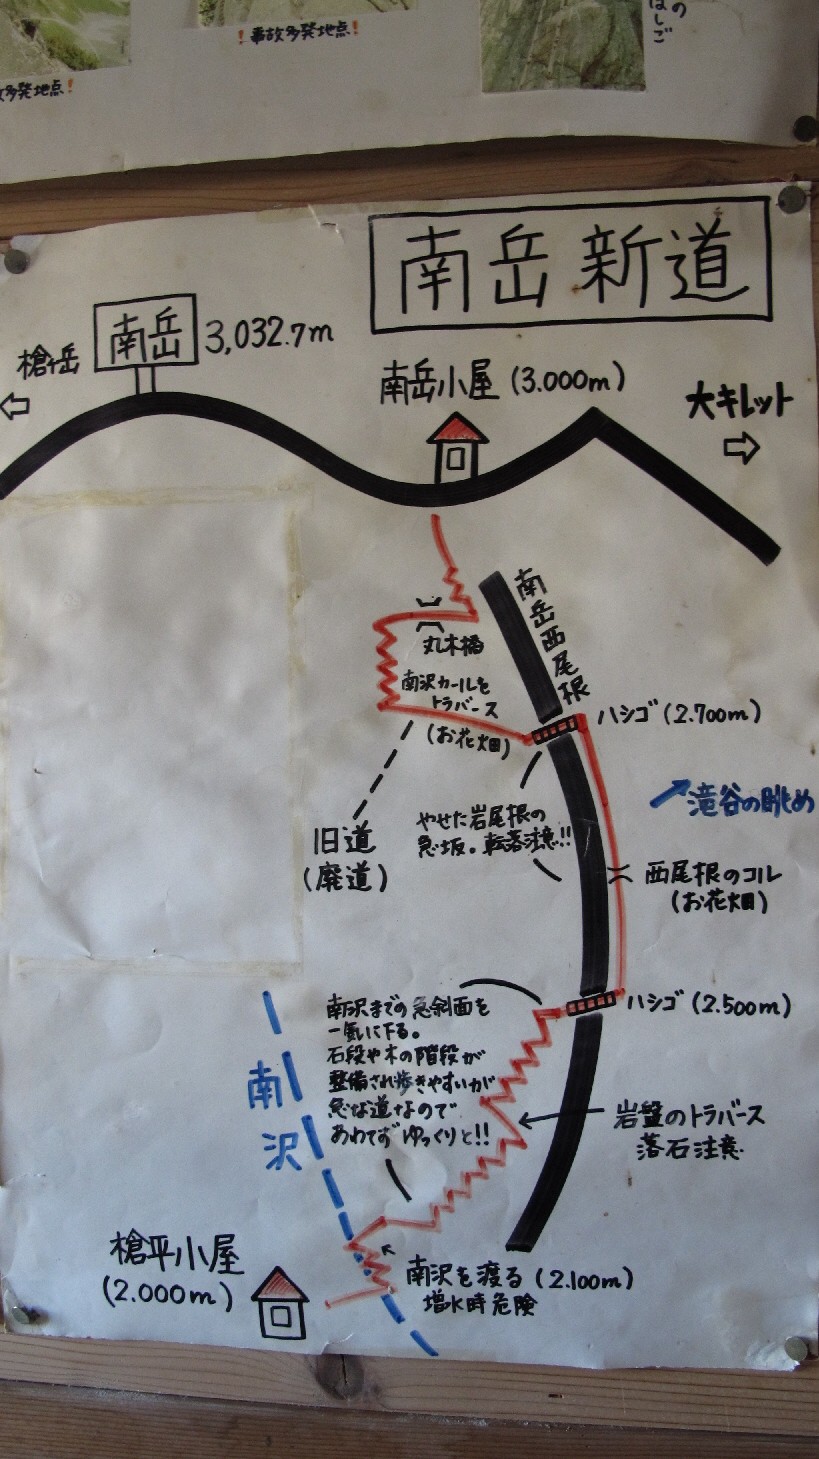 ！事故多発地点！
多発地点！
の
はしご
南岳新道
南岳
3,032.7m
槍ヶ岳
南岳小屋(3.000m)
大キレット
南岳西尾根
丸木橋
南沢カールを
トラバース
(お花畑)
ハシゴ(2.700m)
滝谷の眺め
旧道
(廃道)
やせた岩尾根の
急坂。転落注意!!
西尾根のコル
(お花畑)
ハシゴ(2.500m)
南沢までの急斜面を
一気に下る。
石段や木の階段が
整備され歩きやすいが
急な道なので
あわてず ゆっくりと!!
南沢
岩盤のトラバース
落石注意
槍平小屋
(2.000m)
南沢を渡る(2.100m)
増水時危険